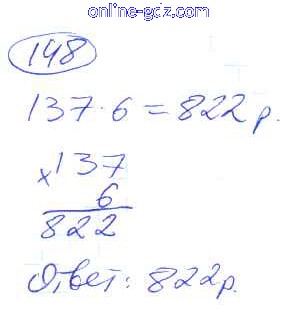 online-gdz.com
148
137·6=822р.
×137
6
822
Ответ: 822р.